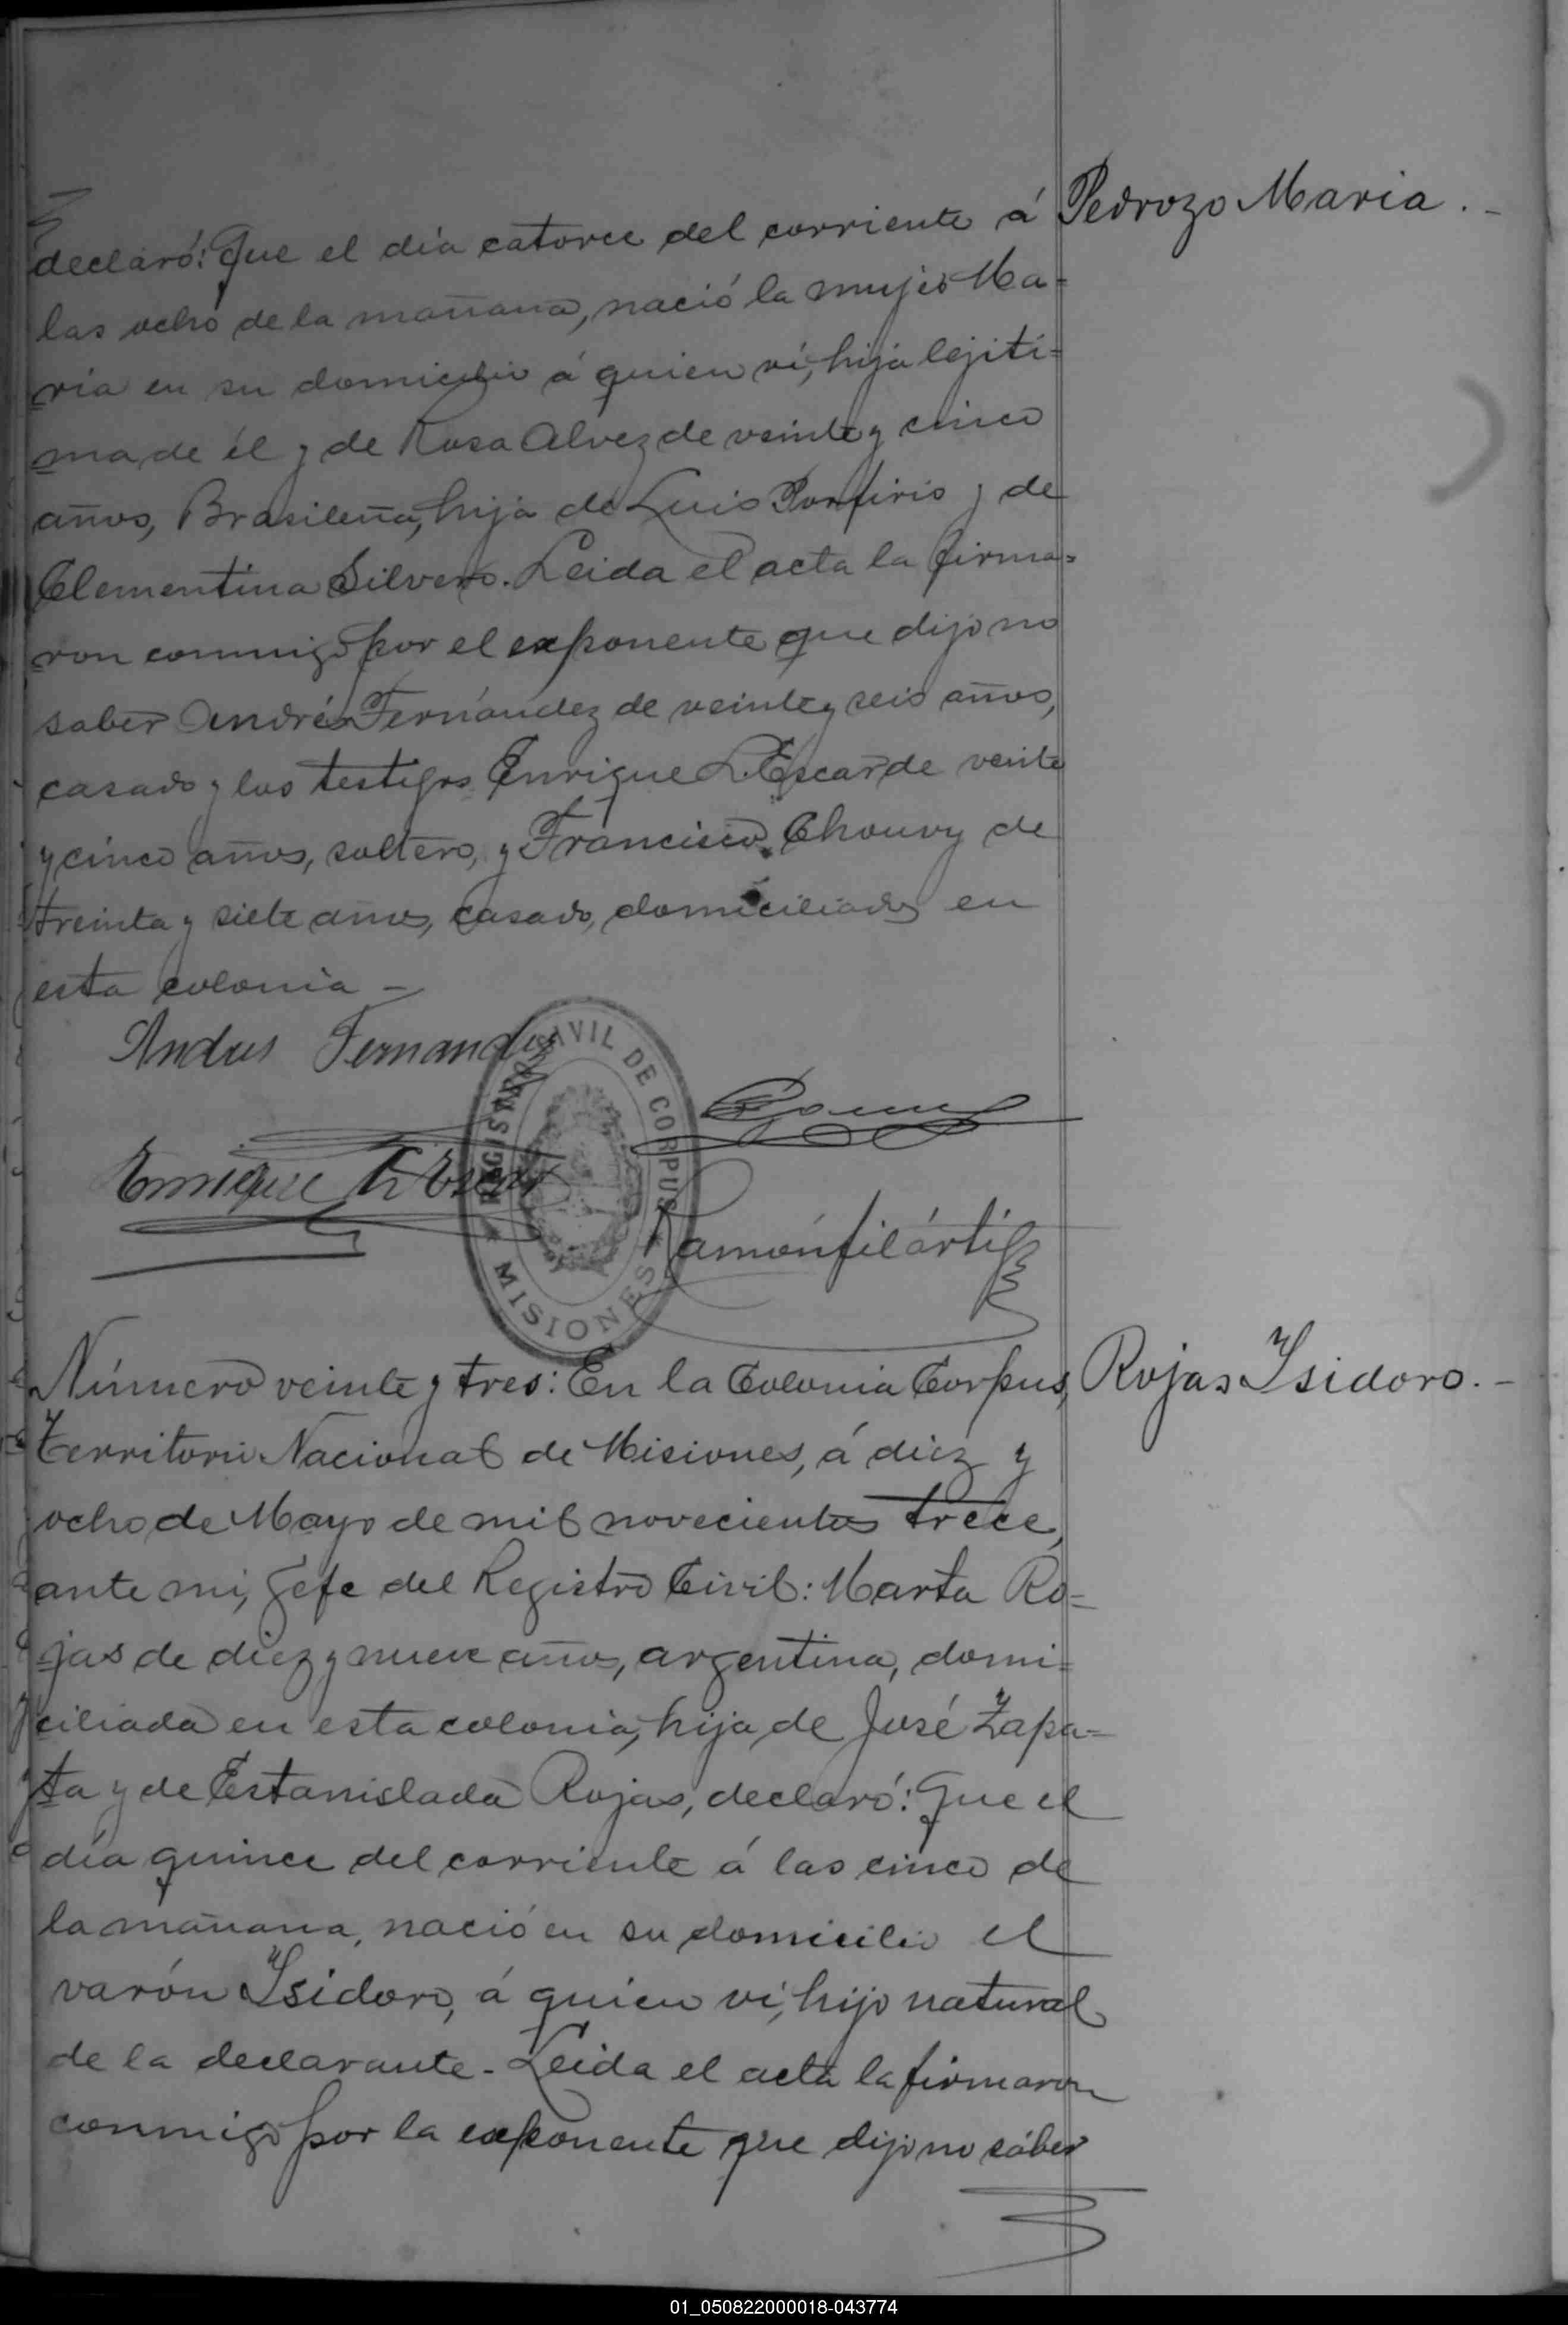 Pedrozo Maria. -
declaró: Que el día catorce del corriente á
las ocho de la mañana, nació la mujer Ma=
ria en su domicilio á quien ví, hija lejiti=
ma de él y de Rosa Alvez de veinte y cinco
años, Brasileña, hija de Luis Porfirio y de
Clementina Silvero. Leida el acta la firma=
ron conmigo por el exponente que dijo no
saber Andrés Fernández de veinte y seis años,
casado y los testigos Enrique L. Escar de veinte
y cinco años, soltero, y Francisco Chouvy de
treinta y siete años, casado, domiciliados en
esta colonia -
Andres Fernandez
REGISTRO CIVIL DE CORPUS
* MISIONES *
Enrique
Ramón
Rojas Ysidoro. -
Número veinte y tres: En la Colonia Corpus,
Territorio Nacional de Misiones, á diez y
ocho de Mayo de mil novecientos trece,
ante mi, Gefe del Registro Civil: Marta Ro=
jas de diez y nueve años, argentina, domi=
ciliada en esta colonia, hija de José Zapa=
ta y de Estanislada Rojas, declaró: Que el
día quince del corriente á las cinco de
la mañana, nació en su domicilio el
varón Ysidoro, á quien ví, hijo natural
de la declarante - Leida el acta la firmaron
conmigo por la exponente que dijo no saber
01_050822000018-043774